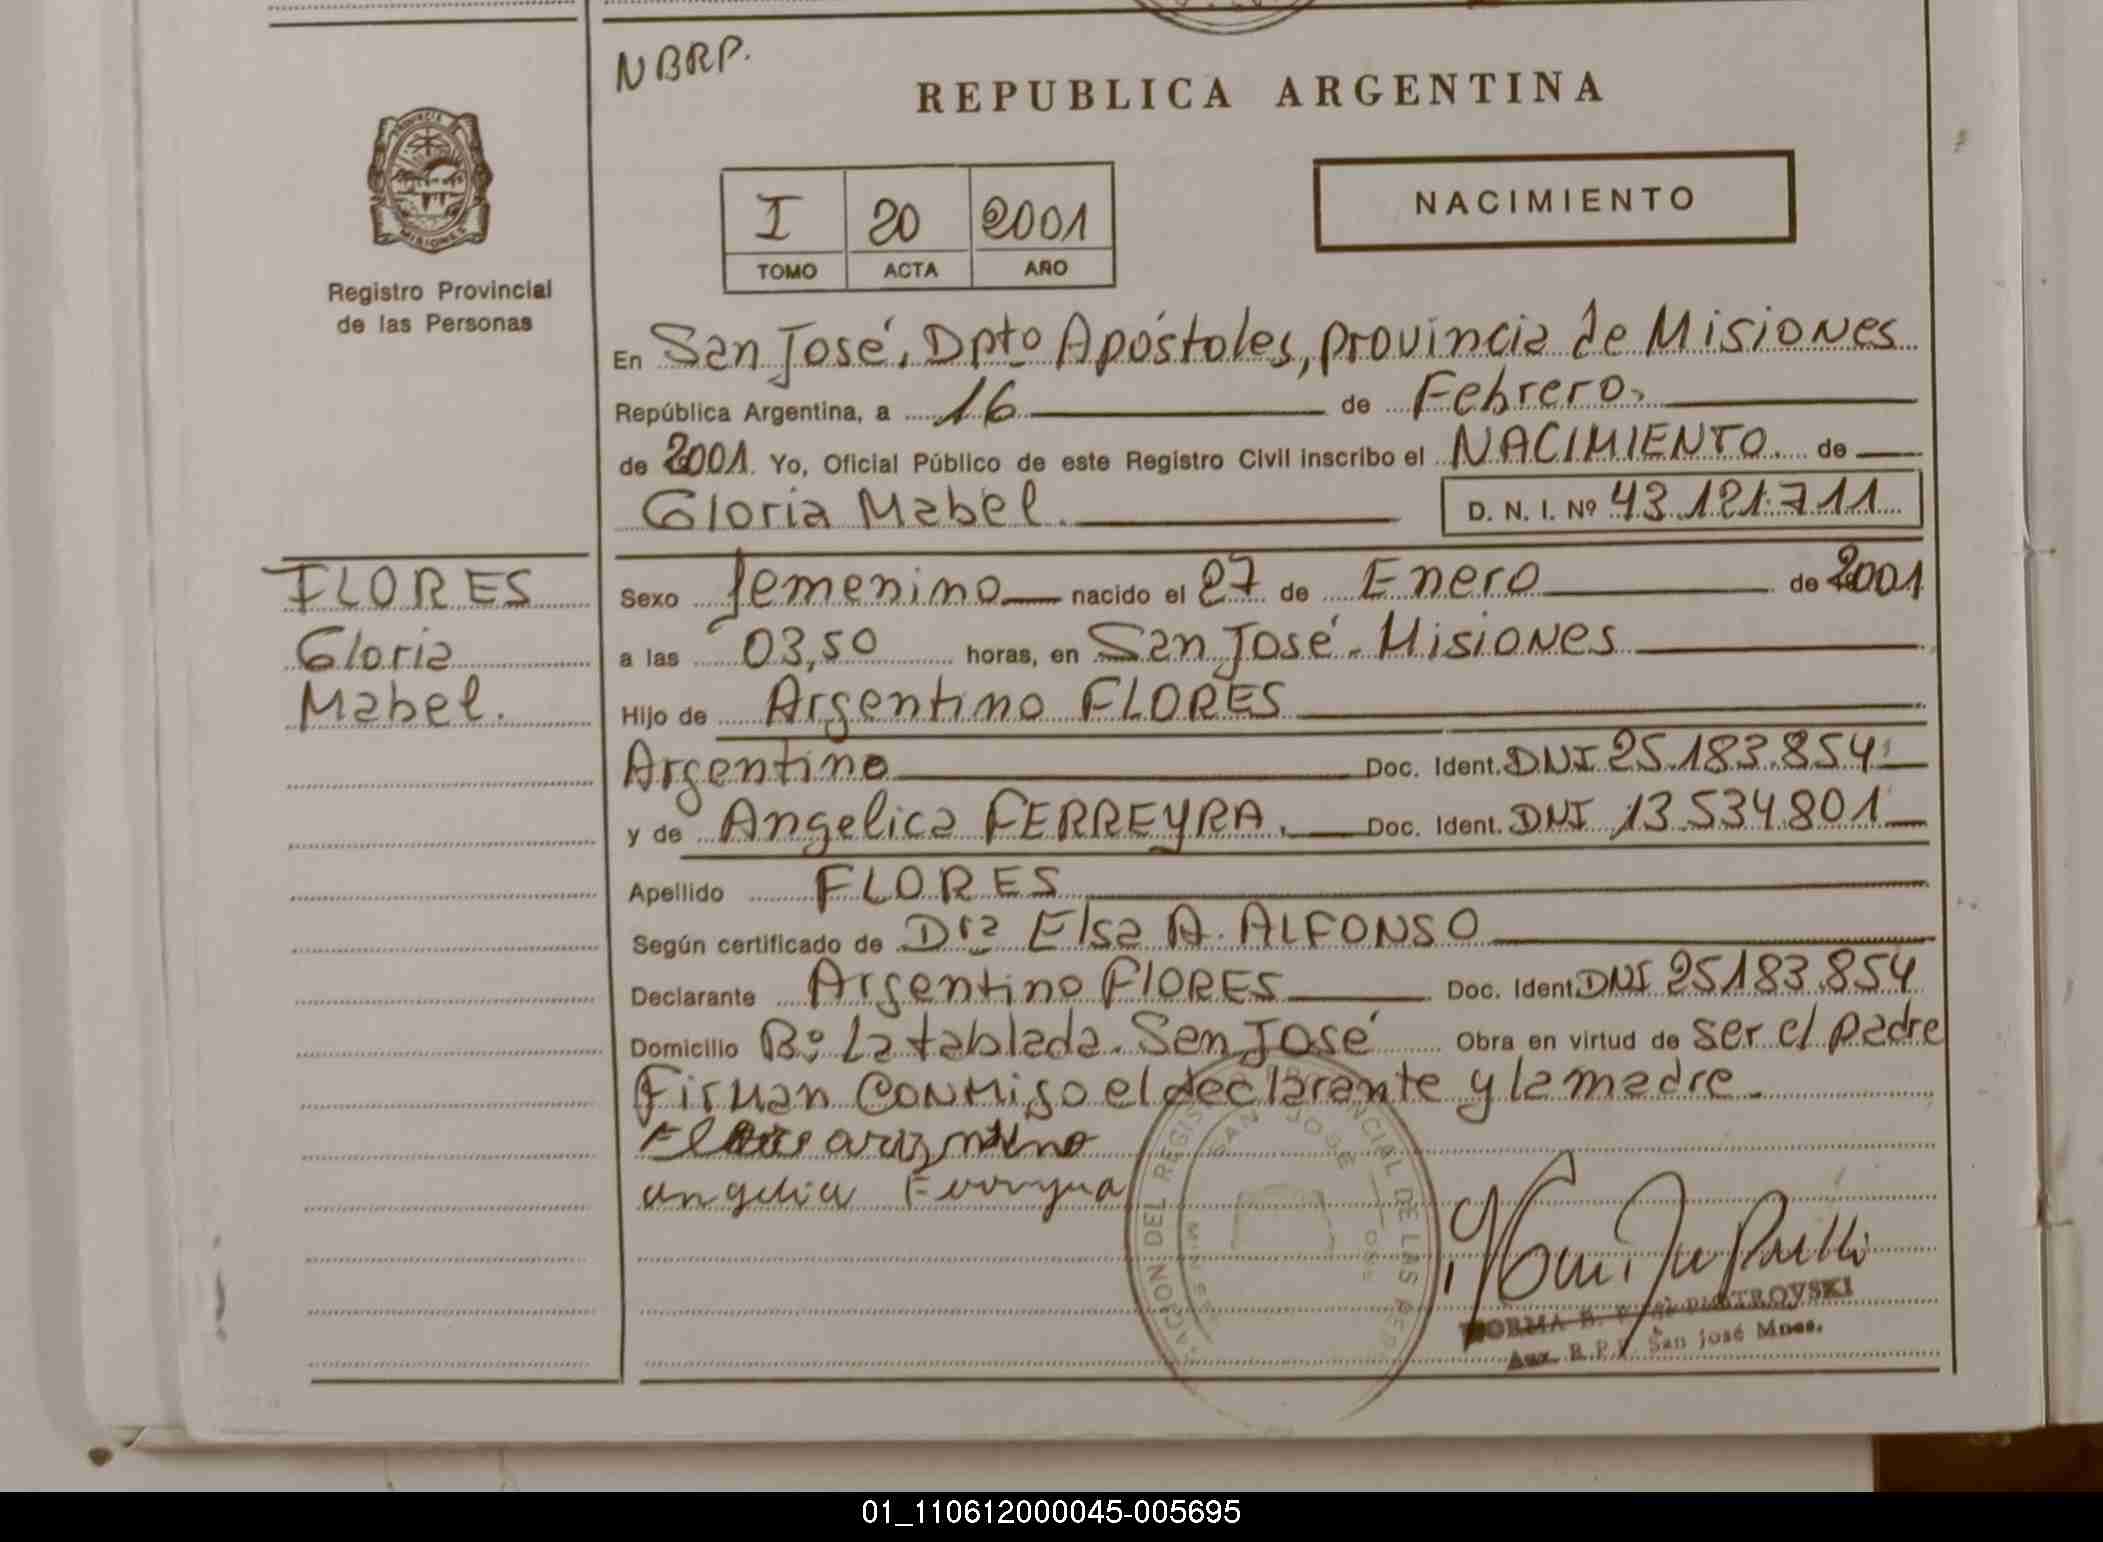 NBRP.
REPUBLICA ARGENTINA
PROVINCIA DE
MISIONES
Registro Provincial
de las Personas
I 20 2001
TOMO ACTA AÑO
NACIMIENTO
En San José, Dpto Apóstoles, provincia de Misiones
República Argentina, a 16 de Febrero,
de 2001. Yo, Oficial Público de este Registro Civil inscribo el NACIMIENTO. de
Gloria Mabel. D. N. I. Nº 43.121.711
FLORES
Gloria
Mabel.
Sexo femenino nacido el 27 de Enero de 2001
a las 03,50 horas, en San José. Misiones
Hijo de Argentino FLORES
Argentino Doc. Ident. DNI 25.183.854
y de Angelica FERREYRA. Doc. Ident. DNI 13.534.801
Apellido FLORES
Según certificado de Dra Elsa A. ALFONSO
Declarante Argentino FlORES Doc. Ident. DNI 25183.854
Domicilio Bº La tablada. San José Obra en virtud de ser el padre
Firman conmigo el declarante y la madre.
Angelica Ferreyra
SAN JOSE
DEL REGISTRO PROVINCIAL DE LAS
NORMA B. PIOTROVSKI
Aux. R.P.P. San José Mnes.
01_110612000045-005695